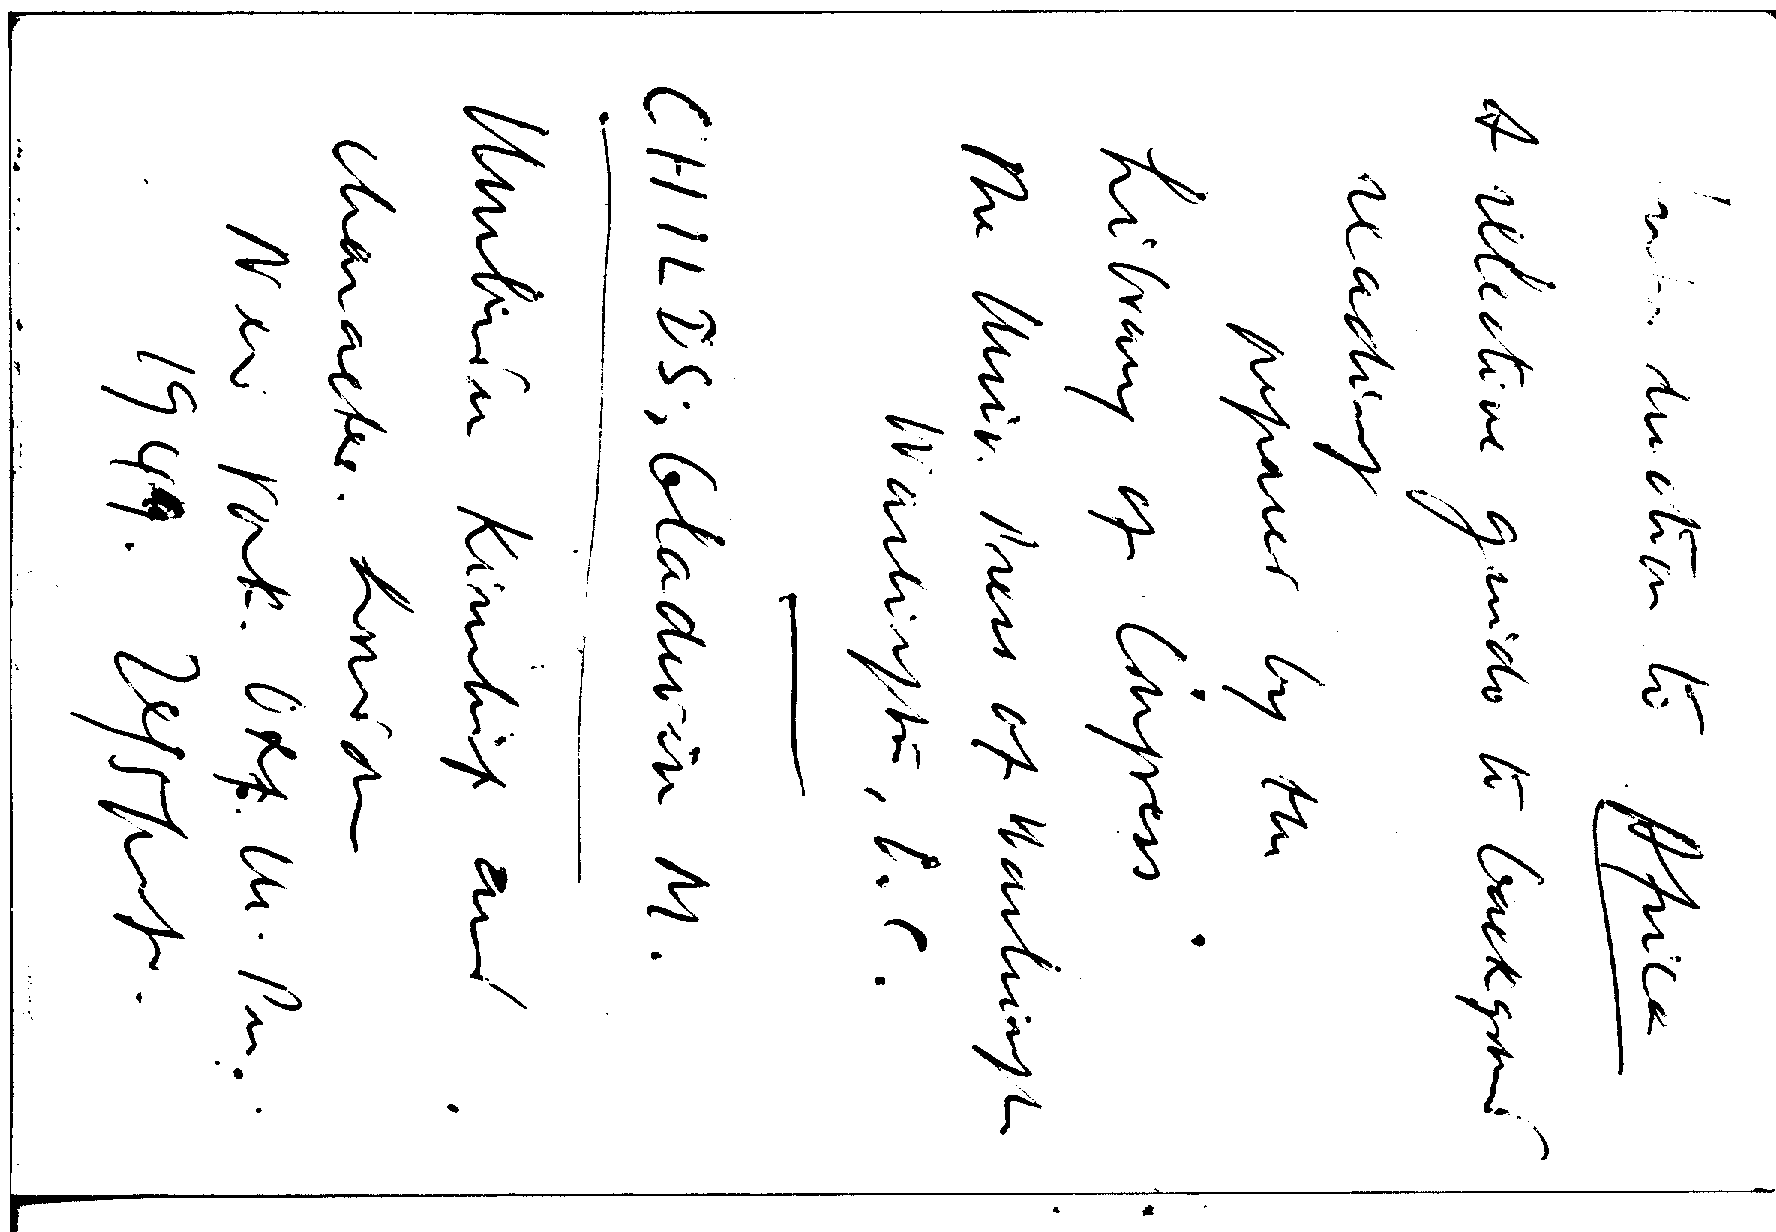 Introduction to Africa
A selective guide to background
reading
prepared by the
Library of Congress
The Univ. Press of Washington
Washington, D.C.
CHILDS, Gladwin M.
Umbundu Kinship and
character. London
New York. Oxf. U. Pr.
1949.